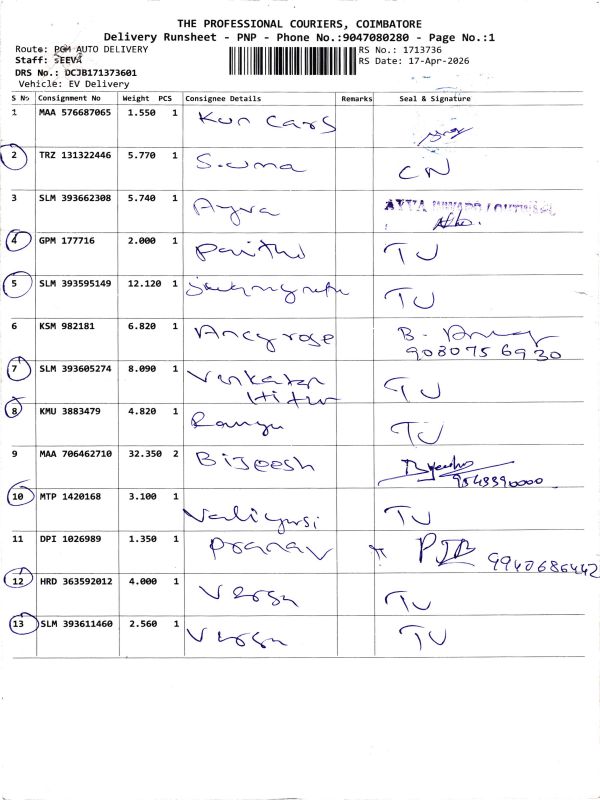 THE PROFESSIONAL COURIERS, COIMBATORE
Delivery Runsheet - PNP - Phone No.:9047080280 - Page No.:1
Route: PGM AUTO DELIVERY
RS No.: 1713736
Staff: SEEVA
RS Date: 17-Apr-2026
DRS No.: DCJB171373601
Vehicle: EV Delivery
S No Consignment No Weight PCS Consignee Details Remarks Seal & Signature
1 MAA 576687065 1.550 1 Kun Cars
2 TRZ 131322446 5.770 1 S.uma CN
3 SLM 393662308 5.740 1 Ayva AYVA
4 GPM 177716 2.000 1 TU
5 SLM 393595149 12.120 1 TU
6 KSM 982181 6.820 1 Ancyrose B.
9080756930
7 SLM 393605274 8.090 1 Venkatan TU
8 KMU 3883479 4.820 1 Ramya TU
9 MAA 706462710 32.350 2 Bijeesh
9543390000
10 MTP 1420168 3.100 1 TU
11 DPI 1026989 1.350 1 Pranav 9940686442
12 HRD 363592012 4.000 1 TU
13 SLM 393611460 2.560 1 TU